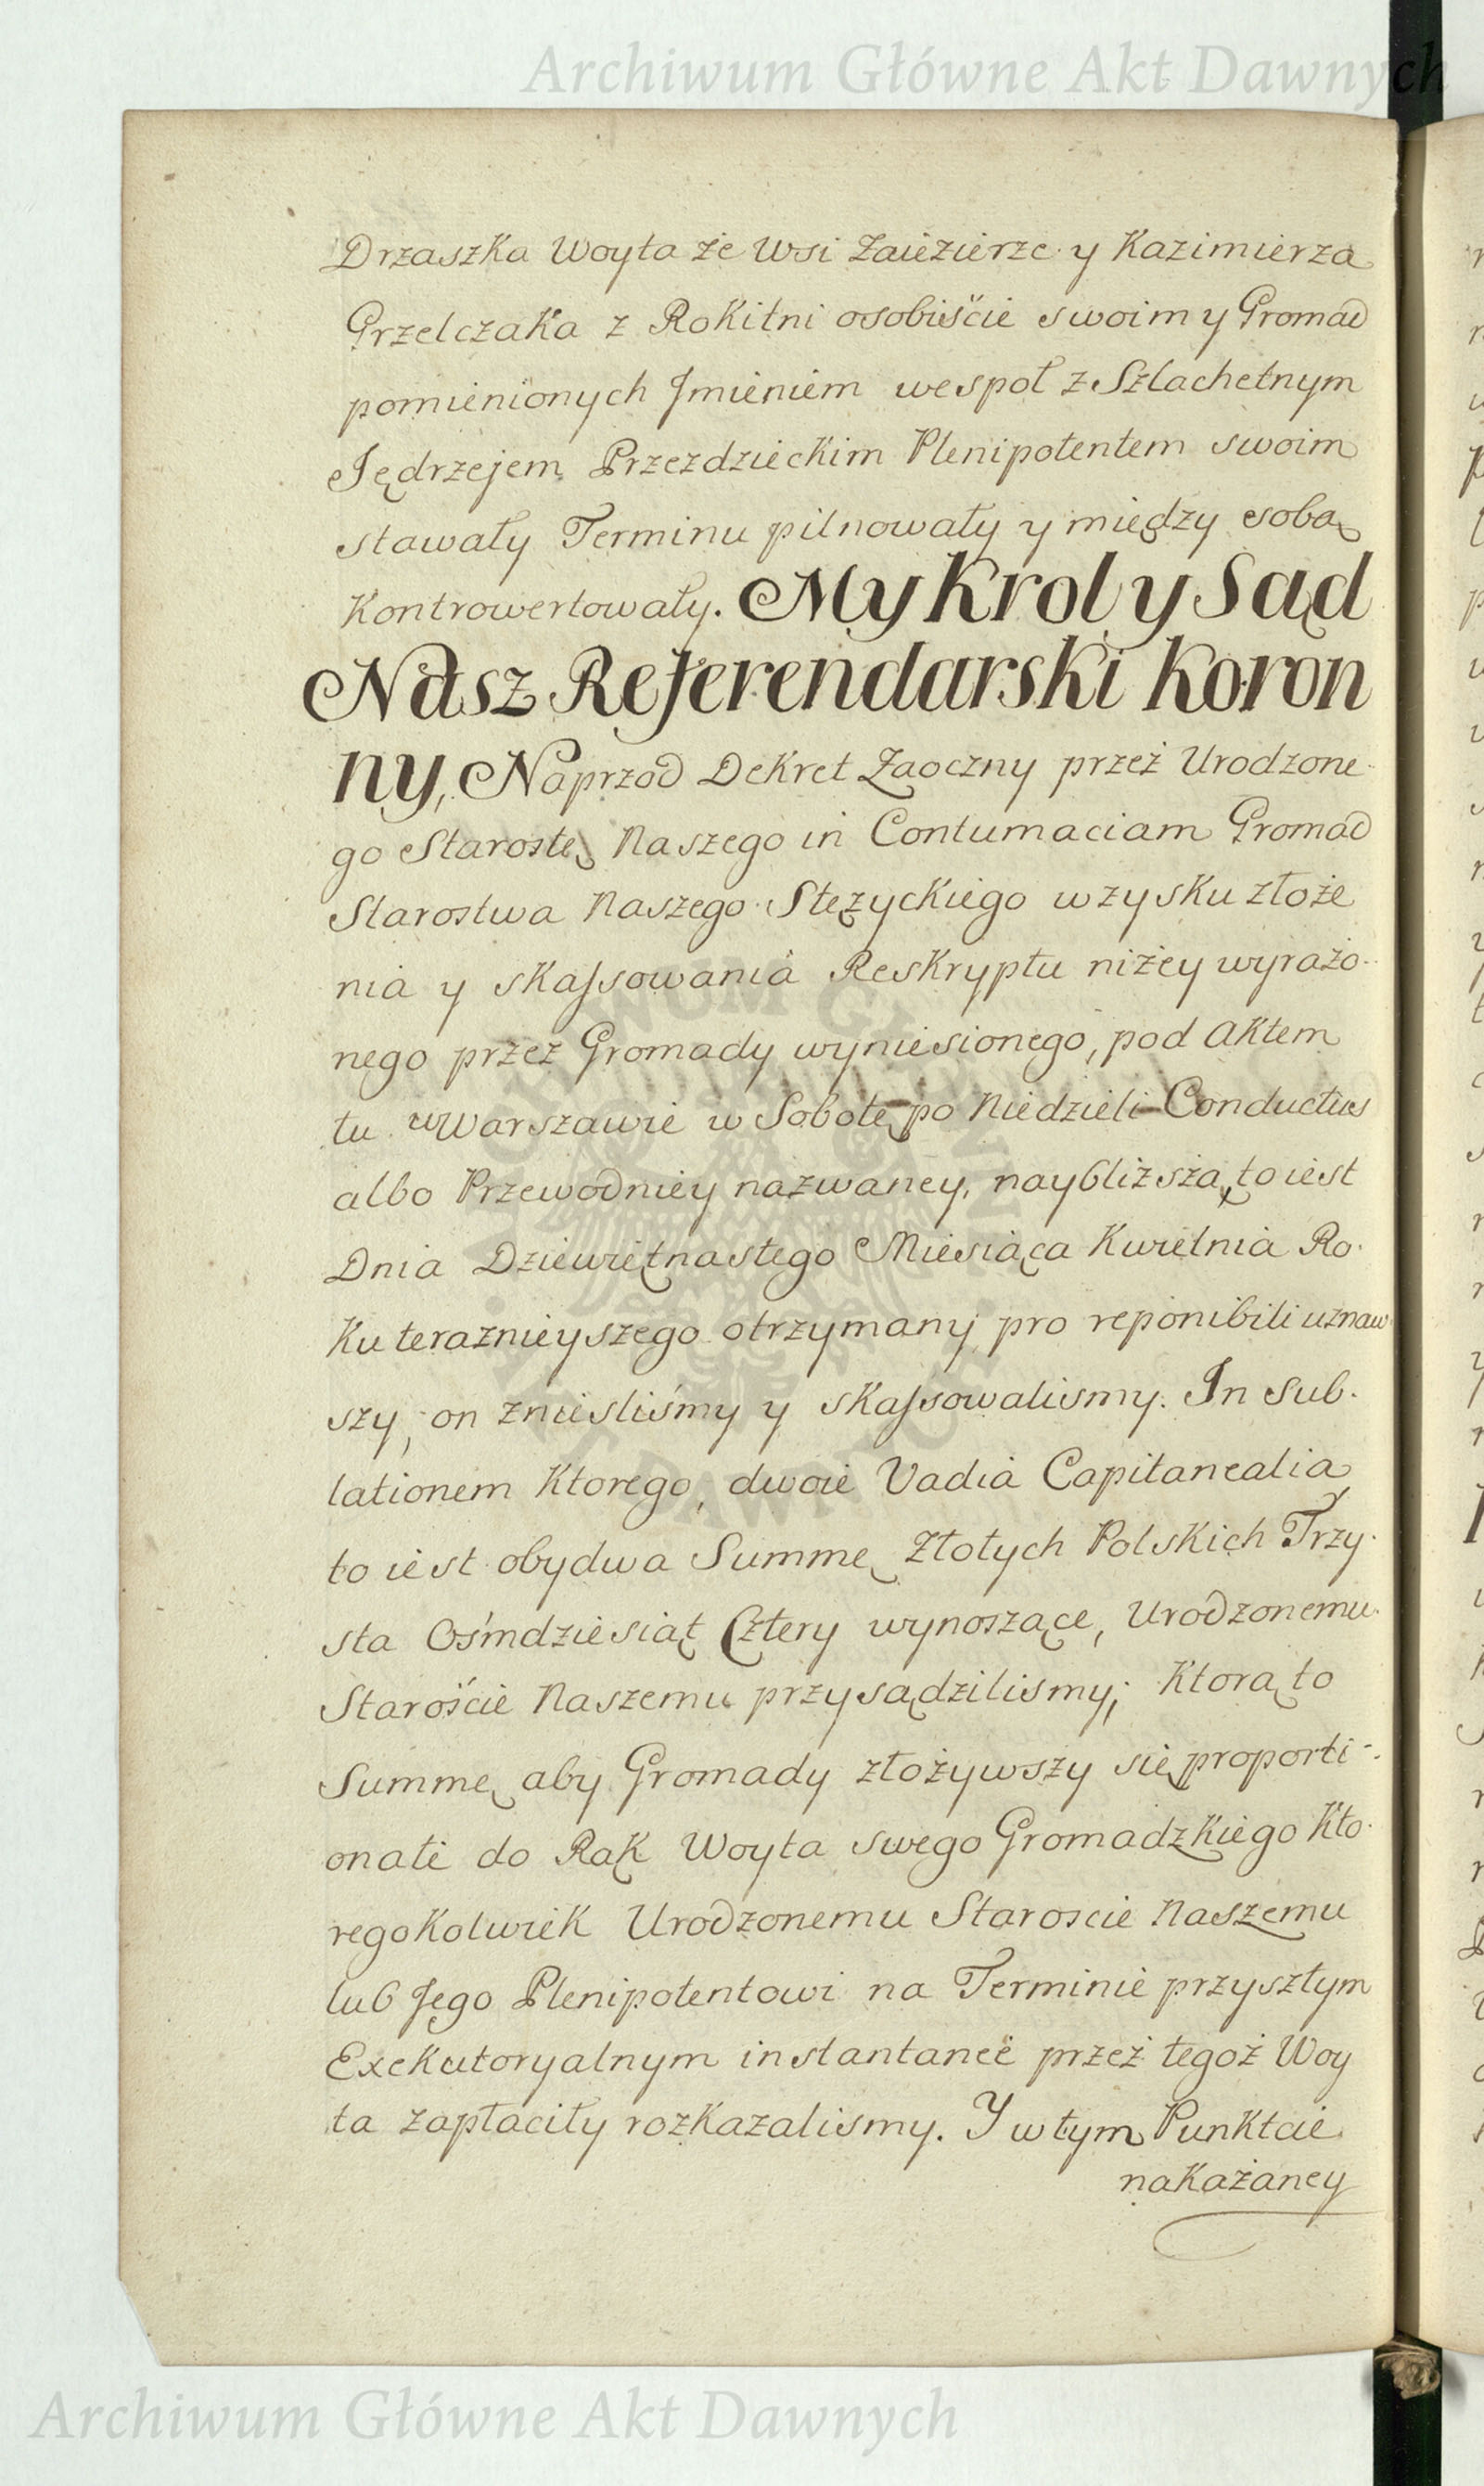 Archiwum Główne Akt Dawnych
Drzaszka Woyta że Wsi Zaiezierze y Kazimierza
Grzelczaka z Rokitni osobiście swoim y Gromad
pomienionych Jmieniem wespoł z Szlachetnym
Jędrzejem Przezdzieckim Plenipotentem swoim
stawały Terminu pilnowały y między sobą
Kontrowertowały. My Krol y Sąd
Nasz Referendarski Koron
ny, Naprzod Dekret Zaoczny przeż Urodzone-
go Starostę Naszego in Contumaciam Gromad
Starostwa Naszego Stężyckiego w zysku złoże
nia y skassowania Reskryptu niżey wyrażo-
nego przez Gromady wyniesionego, pod Aktem
tu w Warszawie w Sobotę po Niedzieli Conductus
albo Przewodniey nazwaney, naybliższą, to iest
Dnia Dziewiętnastego Miesiąca Kwietnia Ro-
ku teraznieyszego otrzymany pro reponibili uznaw
szy, on znieśliśmy y skassowalismy. In Sub-
lationem Ktorego, dwoie Vadia Capitanealia,
to iest obydwa Summę Złotych Polskich Trzy-
sta Ośmdziesiąt Cztery wynoszące, Urodzonemu
Staroście Naszemu przysądzilismy; Ktorą to
Summę aby Gromady złożywszy się proporti-
onate do Rąk Woyta swego Gromadzkiego Kto-
regokolwiek Urodzonemu Staroscie Naszemu
lub Jego Plenipotentowi na Terminie przyszłym
Exekutoryalnym instantaneè przeż tegoż Woy
ta zapłaciły rozkazalismy. Y w tym Punktcie
nakażaney
Archiwum Główne Akt Dawnych